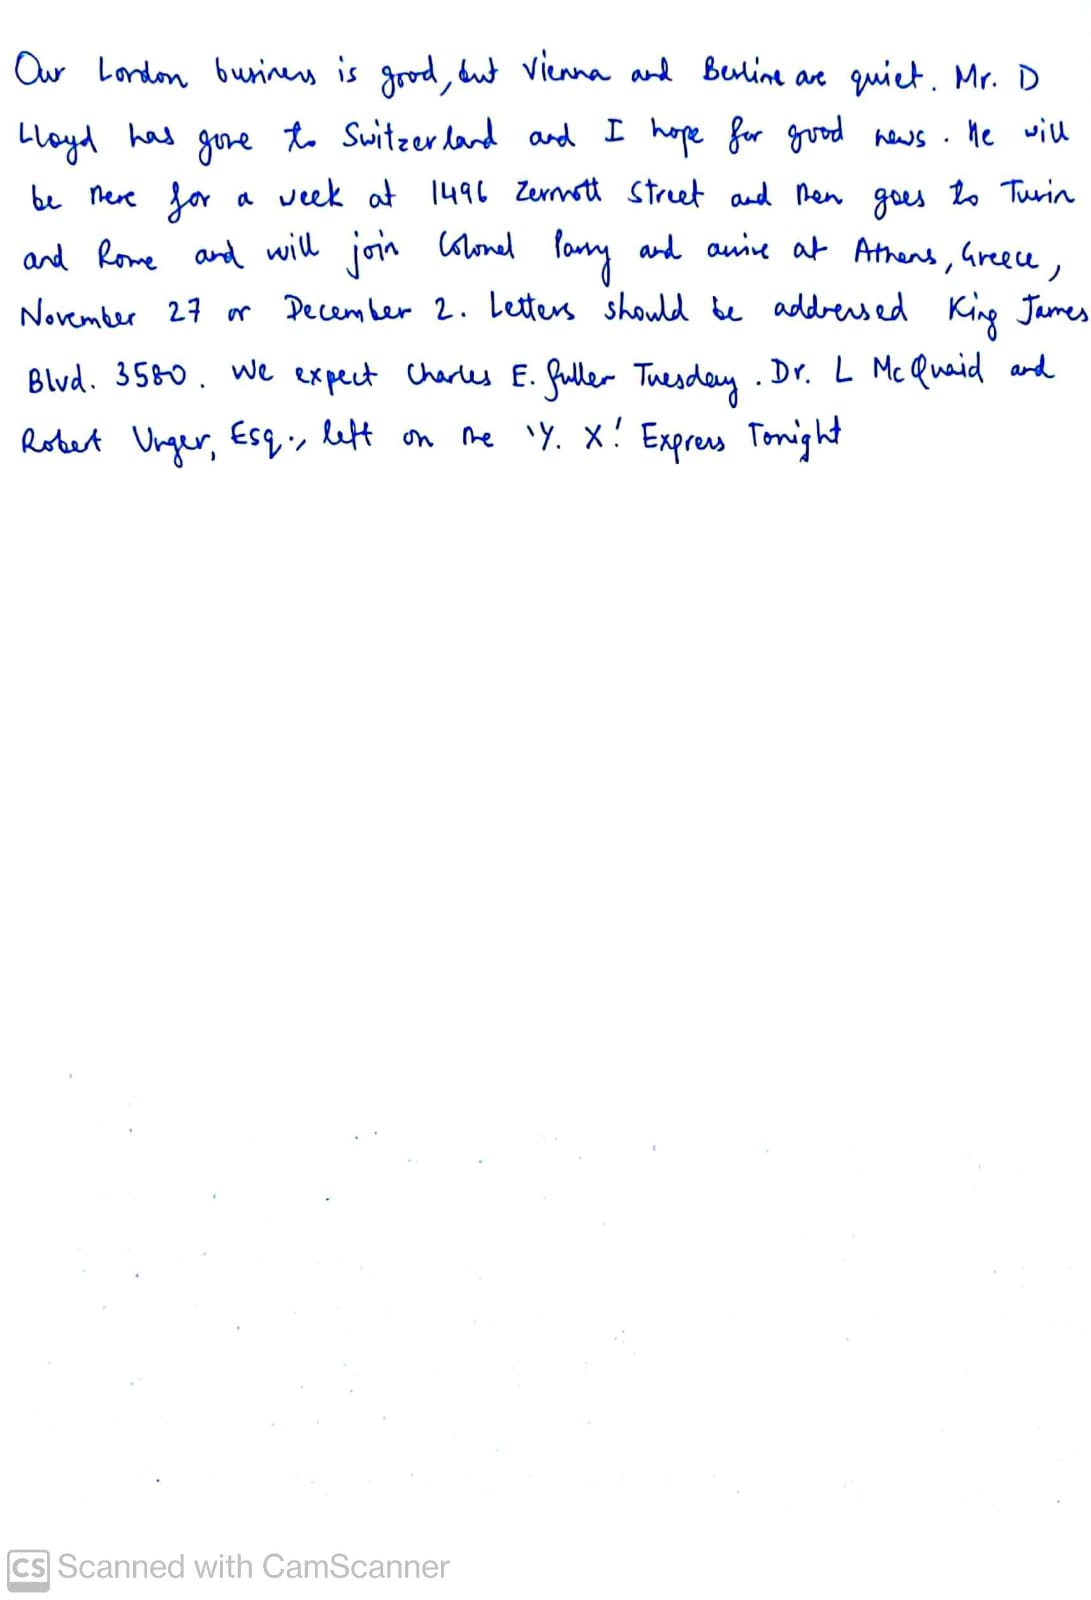 Our London business is good, but Vienna and Berline are quiet. Mr. D
Lloyd has gone to Switzerland and I hope for good news. He will
be there for a week at 1496 Zermott Street and then goes to Turin
and Rome and will join Colonel Parry and arrive at Athens, Greece,
November 27 or December 2. Letters should be addressed King James
Blvd. 3580. We expect Charles E. Fuller Tuesday. Dr. L McQuaid and
Robert Unger, Esq., left on the 'Y. X.' Express Tonight
CS Scanned with CamScanner